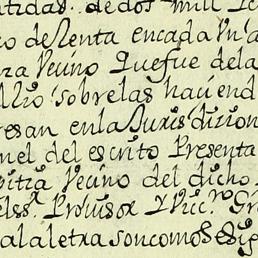 tidas. de dos mill
de Renta encada Un a
Vecino Que fue dela
sobre las haciend
resan en la Juris dicion
nel del escrito Presenta
Vecino del dicho
Provisor Y Vicc.º
ala letra son como Se sig